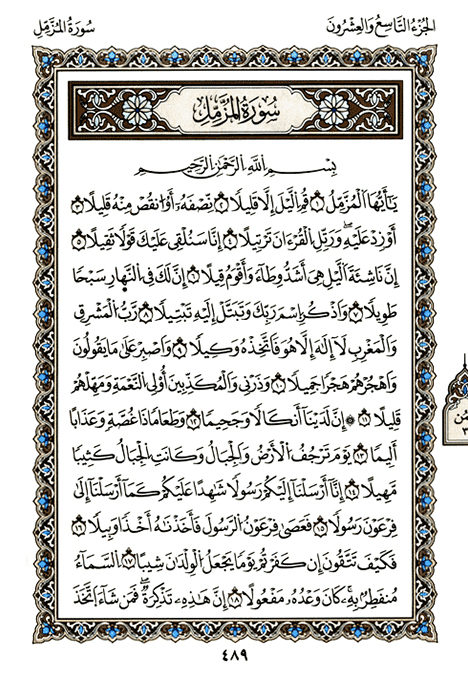 الجُزْءُ التَّاسِعُ وَالعِشْرُونَ
سُورَةُ المُزَّمِّل
سُورَةُ المُزَّمِّلِ
بِسْمِ اللَّهِ الرَّحْمَٰنِ الرَّحِيمِ
يَٰٓأَيُّهَا الْمُزَّمِّلُ ١ قُمِ الَّيْلَ إِلَّا قَلِيلًا ٢ نِّصْفَهُۥٓ أَوِ انقُصْ مِنْهُ قَلِيلًا ٣
أَوْ زِدْ عَلَيْهِ وَرَتِّلِ الْقُرْءَانَ تَرْتِيلًا ٤ إِنَّا سَنُلْقِى عَلَيْكَ قَوْلًا ثَقِيلًا ٥
إِنَّ نَاشِئَةَ الَّيْلِ هِىَ أَشَدُّ وَطْـًٔا وَأَقْوَمُ قِيلًا ٦ إِنَّ لَكَ فِى النَّهَارِ سَبْحًا
طَوِيلًا ٧ وَاذْكُرِ اسْمَ رَبِّكَ وَتَبَتَّلْ إِلَيْهِ تَبْتِيلًا ٨ رَّبُّ الْمَشْرِقِ
وَالْمَغْرِبِ لَآ إِلَٰهَ إِلَّا هُوَ فَاتَّخِذْهُ وَكِيلًا ٩ وَاصْبِرْ عَلَىٰ مَا يَقُولُونَ
وَاهْجُرْهُمْ هَجْرًا جَمِيلًا ١٠ وَذَرْنِى وَالْمُكَذِّبِينَ أُو۟لِى النَّعْمَةِ وَمَهِّلْهُمْ
قَلِيلًا ١١ ۞ إِنَّ لَدَيْنَآ أَنكَالًا وَجَحِيمًا ١٢ وَطَعَامًا ذَا غُصَّةٍ وَعَذَابًا
أَلِيمًا ١٣ يَوْمَ تَرْجُفُ الْأَرْضُ وَالْجِبَالُ وَكَانَتِ الْجِبَالُ كَثِيبًا
مَّهِيلًا ١٤ إِنَّآ أَرْسَلْنَآ إِلَيْكُمْ رَسُولًا شَٰهِدًا عَلَيْكُمْ كَمَآ أَرْسَلْنَآ إِلَىٰ
فِرْعَوْنَ رَسُولًا ١٥ فَعَصَىٰ فِرْعَوْنُ الرَّسُولَ فَأَخَذْنَٰهُ أَخْذًا وَبِيلًا ١٦
فَكَيْفَ تَتَّقُونَ إِن كَفَرْتُمْ يَوْمًا يَجْعَلُ الْوِلْدَٰنَ شِيبًا ١٧ السَّمَآءُ
مُنفَطِرٌۢ بِهِۦ كَانَ وَعْدُهُۥ مَفْعُولًا ١٨ إِنَّ هَٰذِهِۦ تَذْكِرَةٌ فَمَن شَآءَ اتَّخَذَ
٤٨٩